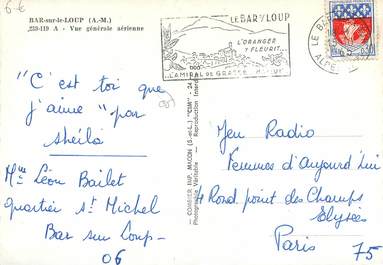 6-€
BAR-sur-le-LOUP (A.-M.)
239-119 A - Vue générale aérienne
LE BAR s/ LOUP
L'ORANGER
Y FLEURIT...
L'AMIRAL DE GRASSE
LE BAR
ALPE
0,30
"C'est toi que
j'aime" par
sheila
Mme Léon Bailet
quartier St Michel
Bar sur Loup-
06
COMBIER IMP. MACON (S.-et-L.) "CIM"
Photographie Véritable - Reproduction Interd
Jeu Radio
Femmes d'Aujourd'hui
4 Rond point des Champs
Elysées
Paris 75